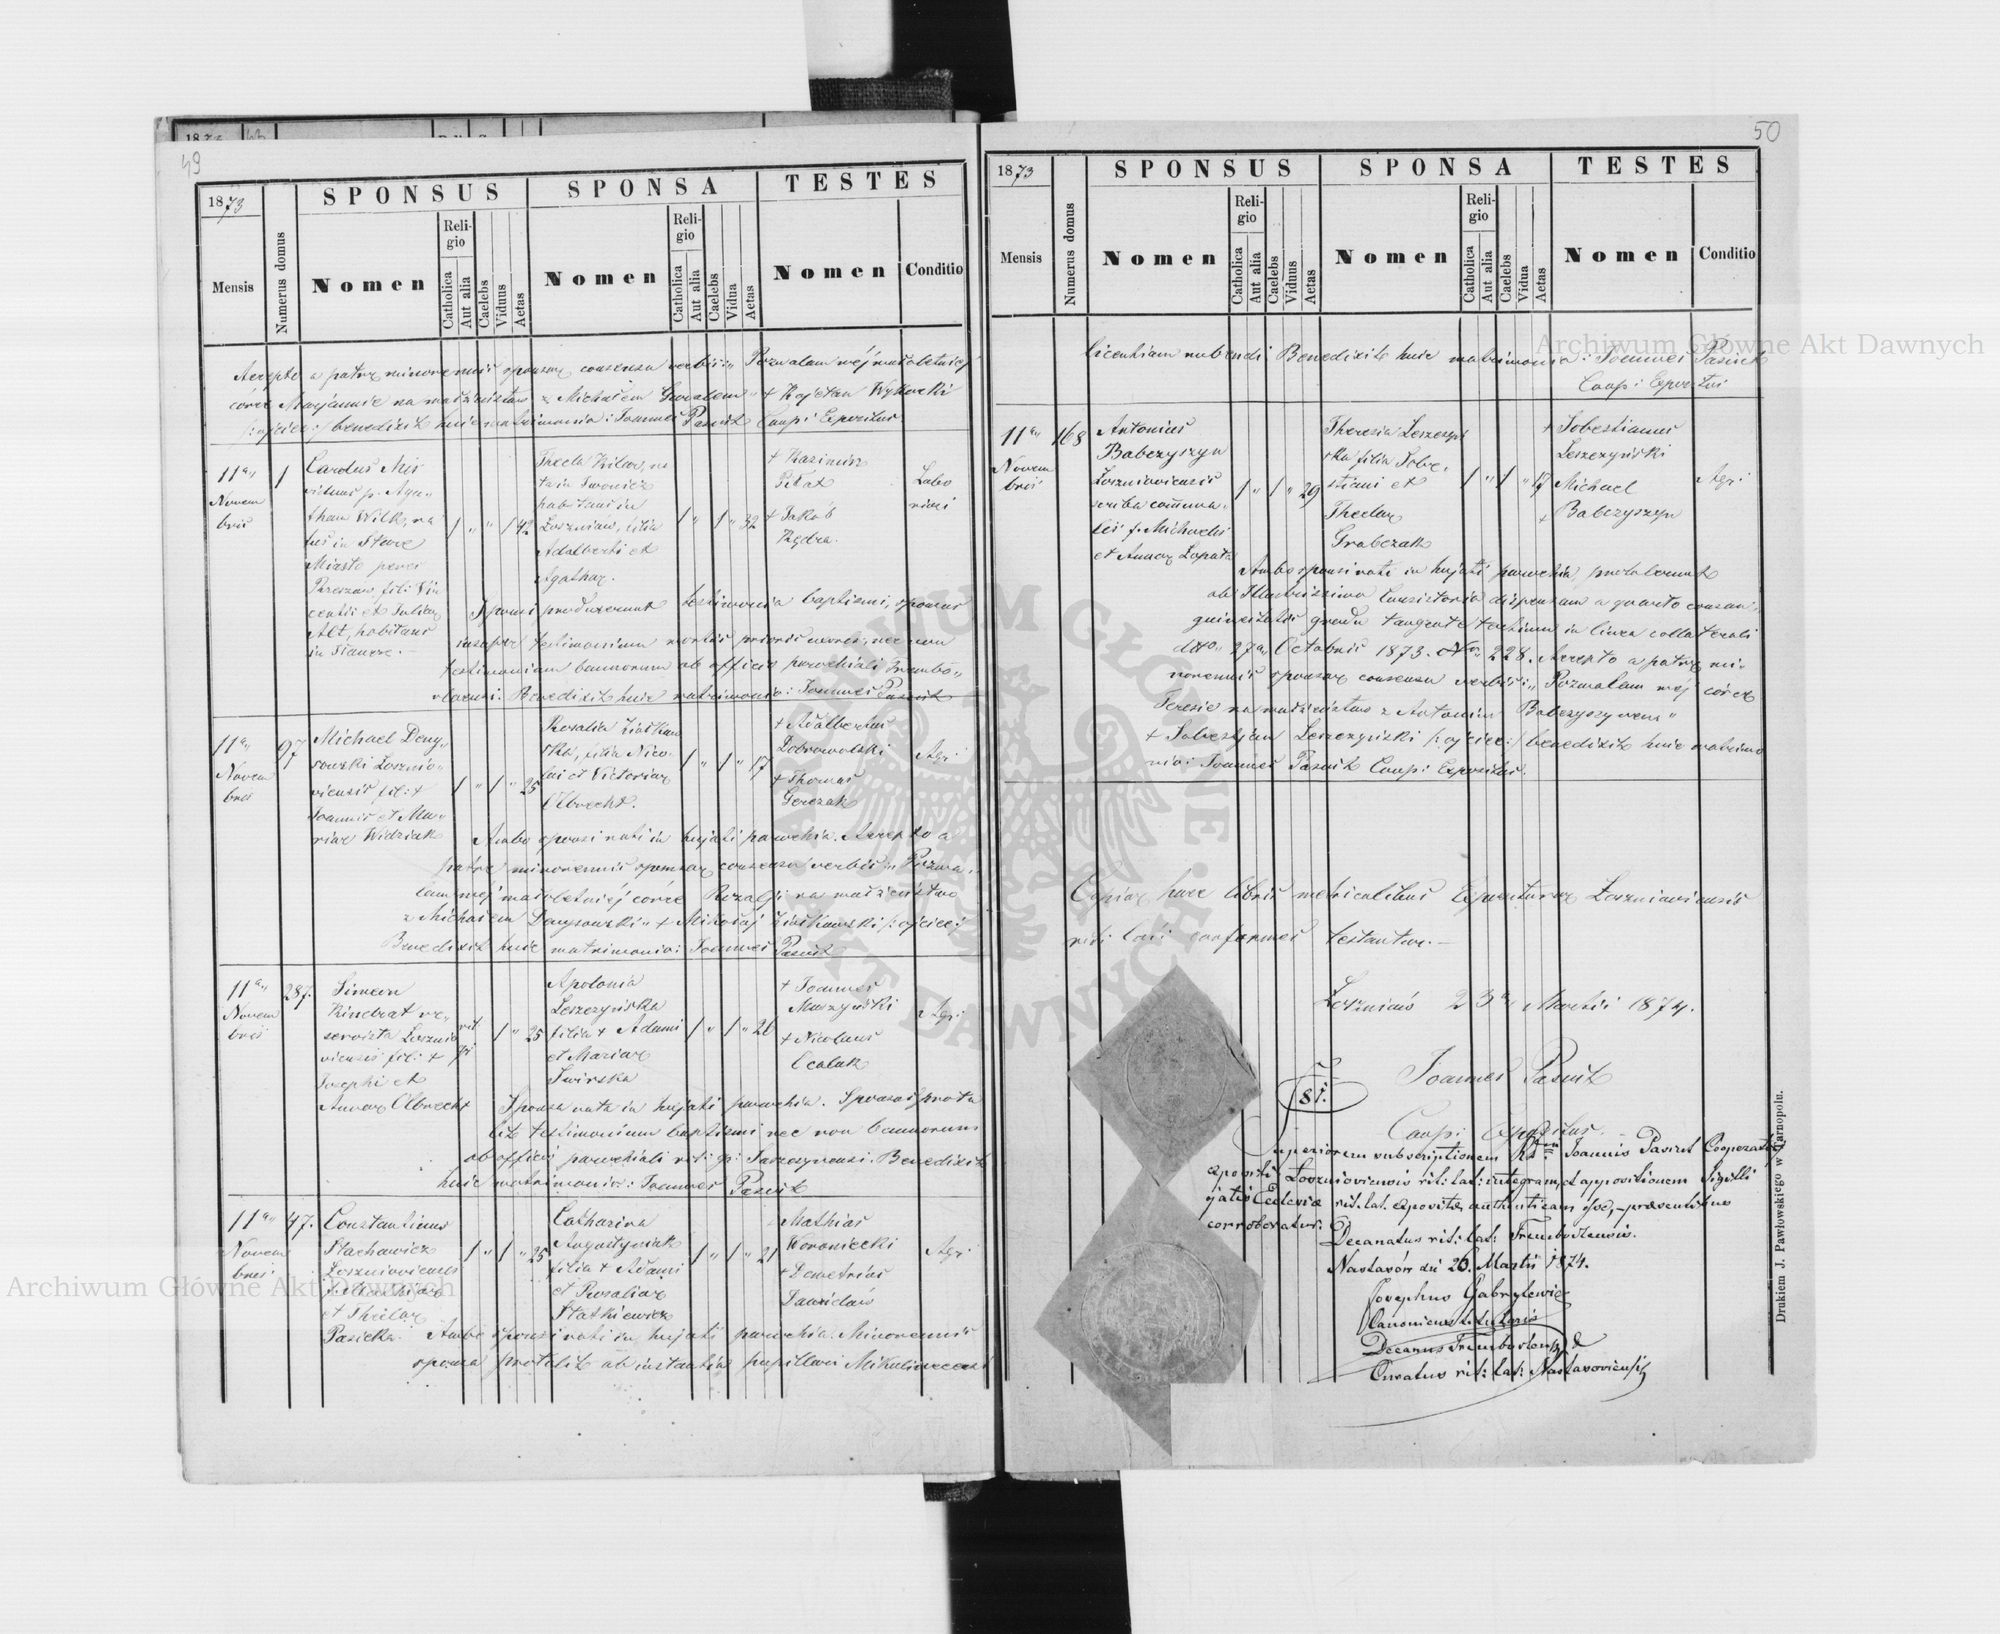 49
1873
SPONSUS
SPONSA
TESTES
Mensis
Numerus domus
Nomen
Religio
Catholica
Aut alia
Caelebs
Viduus
Aetas
Nomen
Religio
Catholica
Aut alia
Caelebs
Vidua
Aetas
Nomen
Conditio
Accepto a patre minorennis sponsae consensu verbis: "Pozwalam mój małoletniej
córce Marjannie na małżeństwo z Michałem Góralem" + Kajetan Wykowski
/: ojciec :/ benedixit huic matrimonio: Joannes Pasiut Coop: Expositus
11a,,
Novem
bris
1
Carolus
viduus p. Aga-
tham Wilk, na
tus in Stare
Miasto penes
Rzeszów, fil: Vin
centii et Juliae
Alt, habitans
in
1 " " 1 42
Thecla na
ta in Iwonicz
habitans in
Łoszniów, filia
Adalberti et
Agathae
1 " 1 " 32
+ Kazimir
+ Jakób
Kędra.
Labo
riosi
Sponsi produxerunt testimonia baptismi, sponsus
insuper testimonium mortis prioris uxoris, nec non
testimonium bannorum ab officio parochiali Trembo-
vlensi. Benedixit huic matrimonio: Joannes Pasiut
11a,,
Novem
bris
97
Michael Deny-
sowski Łosznio-
viensis fil: +
Joannis et Ma-
riae Widziak
1 " 1 " 25
Rosalia Ziółkow
ska, filia Nico-
lai et Victoriae
Olbrecht.
1 " 1 " 17
+ Adalbertus
Dobrowolski
+ Thomas
Gerczak
Agri
Ambo sponsi nati in hujati parochia. Accepto a
patre minorennis sponsae consensu verbis: "Pozwa-
lam mej małoletniéj córce Rozalji na małżeństwo
z Michałem Denysowski" + Mikołaj Ziółkowski /: ojciec :/
Benedixit huic matrimonio: Joannes Pasiut
11a,,
Novem
bris
287.
Simeon
Kinebrat re-
servista Łosznio
viensis fil: +
Josephi et
Annae Olbrecht
rit
gr
1 " 25
Apolonia
Leszczyńska
filia + Adami
et Mariae
Swirska
1 " 1 " 26
+ Joannes
Muszyński
+ Nicolaus
Agri
Sponsa nata in hujati parochia. Sponsus protu
lit testimonium baptismi nec non bannorum
ab officio parochiali rit: gr: Benedixit
huic matrimonio: Joannes Pasiut
11a,,
Novem
bris
47.
Constantinus
Stachowicz
Łoszniowiensis
f. Mathiae
et Theclae
Pasieka.
1 " 1 " 25
Catharina
Augustyniak
filia + Adami
et Rosaliae
Statkiewicz
1 " 1 " 21
Mathias
Woroniecki
+ Demetrius
Agri
Ambo sponsi nati in hujati parochia. Minorennis
sponsa protulit ab instantia pupillari Mikulincensi
50
1873
SPONSUS
SPONSA
TESTES
Mensis
Numerus domus
Nomen
Religio
Catholica
Aut alia
Caelebs
Viduus
Aetas
Nomen
Religio
Catholica
Aut alia
Caelebs
Vidua
Aetas
Nomen
Conditio
licentiam nubendi. Benedixit huic matrimonio: Joannes Pasiut
Coop: Expositus
11a,,
Novem
bris
168
Antonius
Babczyszyn
Łoszniowiensis
scriba commu-
lis f. Michaelis
et Annae Łopata
1 " 1 " 29
Theresia Leszczyń
ska filia Sobe-
stiani et
Theclae
Grabczak
1 " 1 " 17
+ Sobestianus
Leszczyński
Michael
+ Babczyszyn
Agri
Ambo sponsi nati in hujati parochia, protulerunt
ab Illustrissimo Consistorio dispensam a quarto consan-
guinitatis gradu tangente tertium in linea collaterali
ddto 27a Octobris 1873. No. 228. Accepto a patre mi-
norennis sponsae consensu verbis: "Pozwalam mój córce
Teresie na małżeństwo z Antonim Babczyszynem"
+ Sobestjan Leszczyński /: ojciec :/ benedixit huic matrimo
nio: Joannes Pasiut Coop: Expositus.
Copiae huic libris metricalibus Expositurae Łoszniowiensis
rit: lat: conformes testantur.—
Łoszniów 23a Martii 1874.
Joannes Pasiut
Coop: Expositus.
Superiorem subscriptionem Rdi Joannis Pasiut Cooperatoris
expositi Łoszniowiensis rit: lat: integram, et appositionem Sigilli
hujatis Ecclesiae rit: lat: expositae authenticam esse, praesentibus
corroboratur.
Decanatus rit: lat: Trembovlensis.
Nastasów die 26. Martii 1874.
Josephus Gabrylewicz
Canonicus titularis
Decanus Trembovlensis &
Curatus rit: lat: Nastasoviensis
Drukiem J. Pawłowskiego w Tarnopolu.
Archiwum Główne Akt Dawnych
Archiwum Główne Akt Dawnych
ARCHIWUM GŁÓWNE AKT DAWNYCH